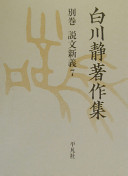 白川静著作集
別巻 説文新義
平凡社